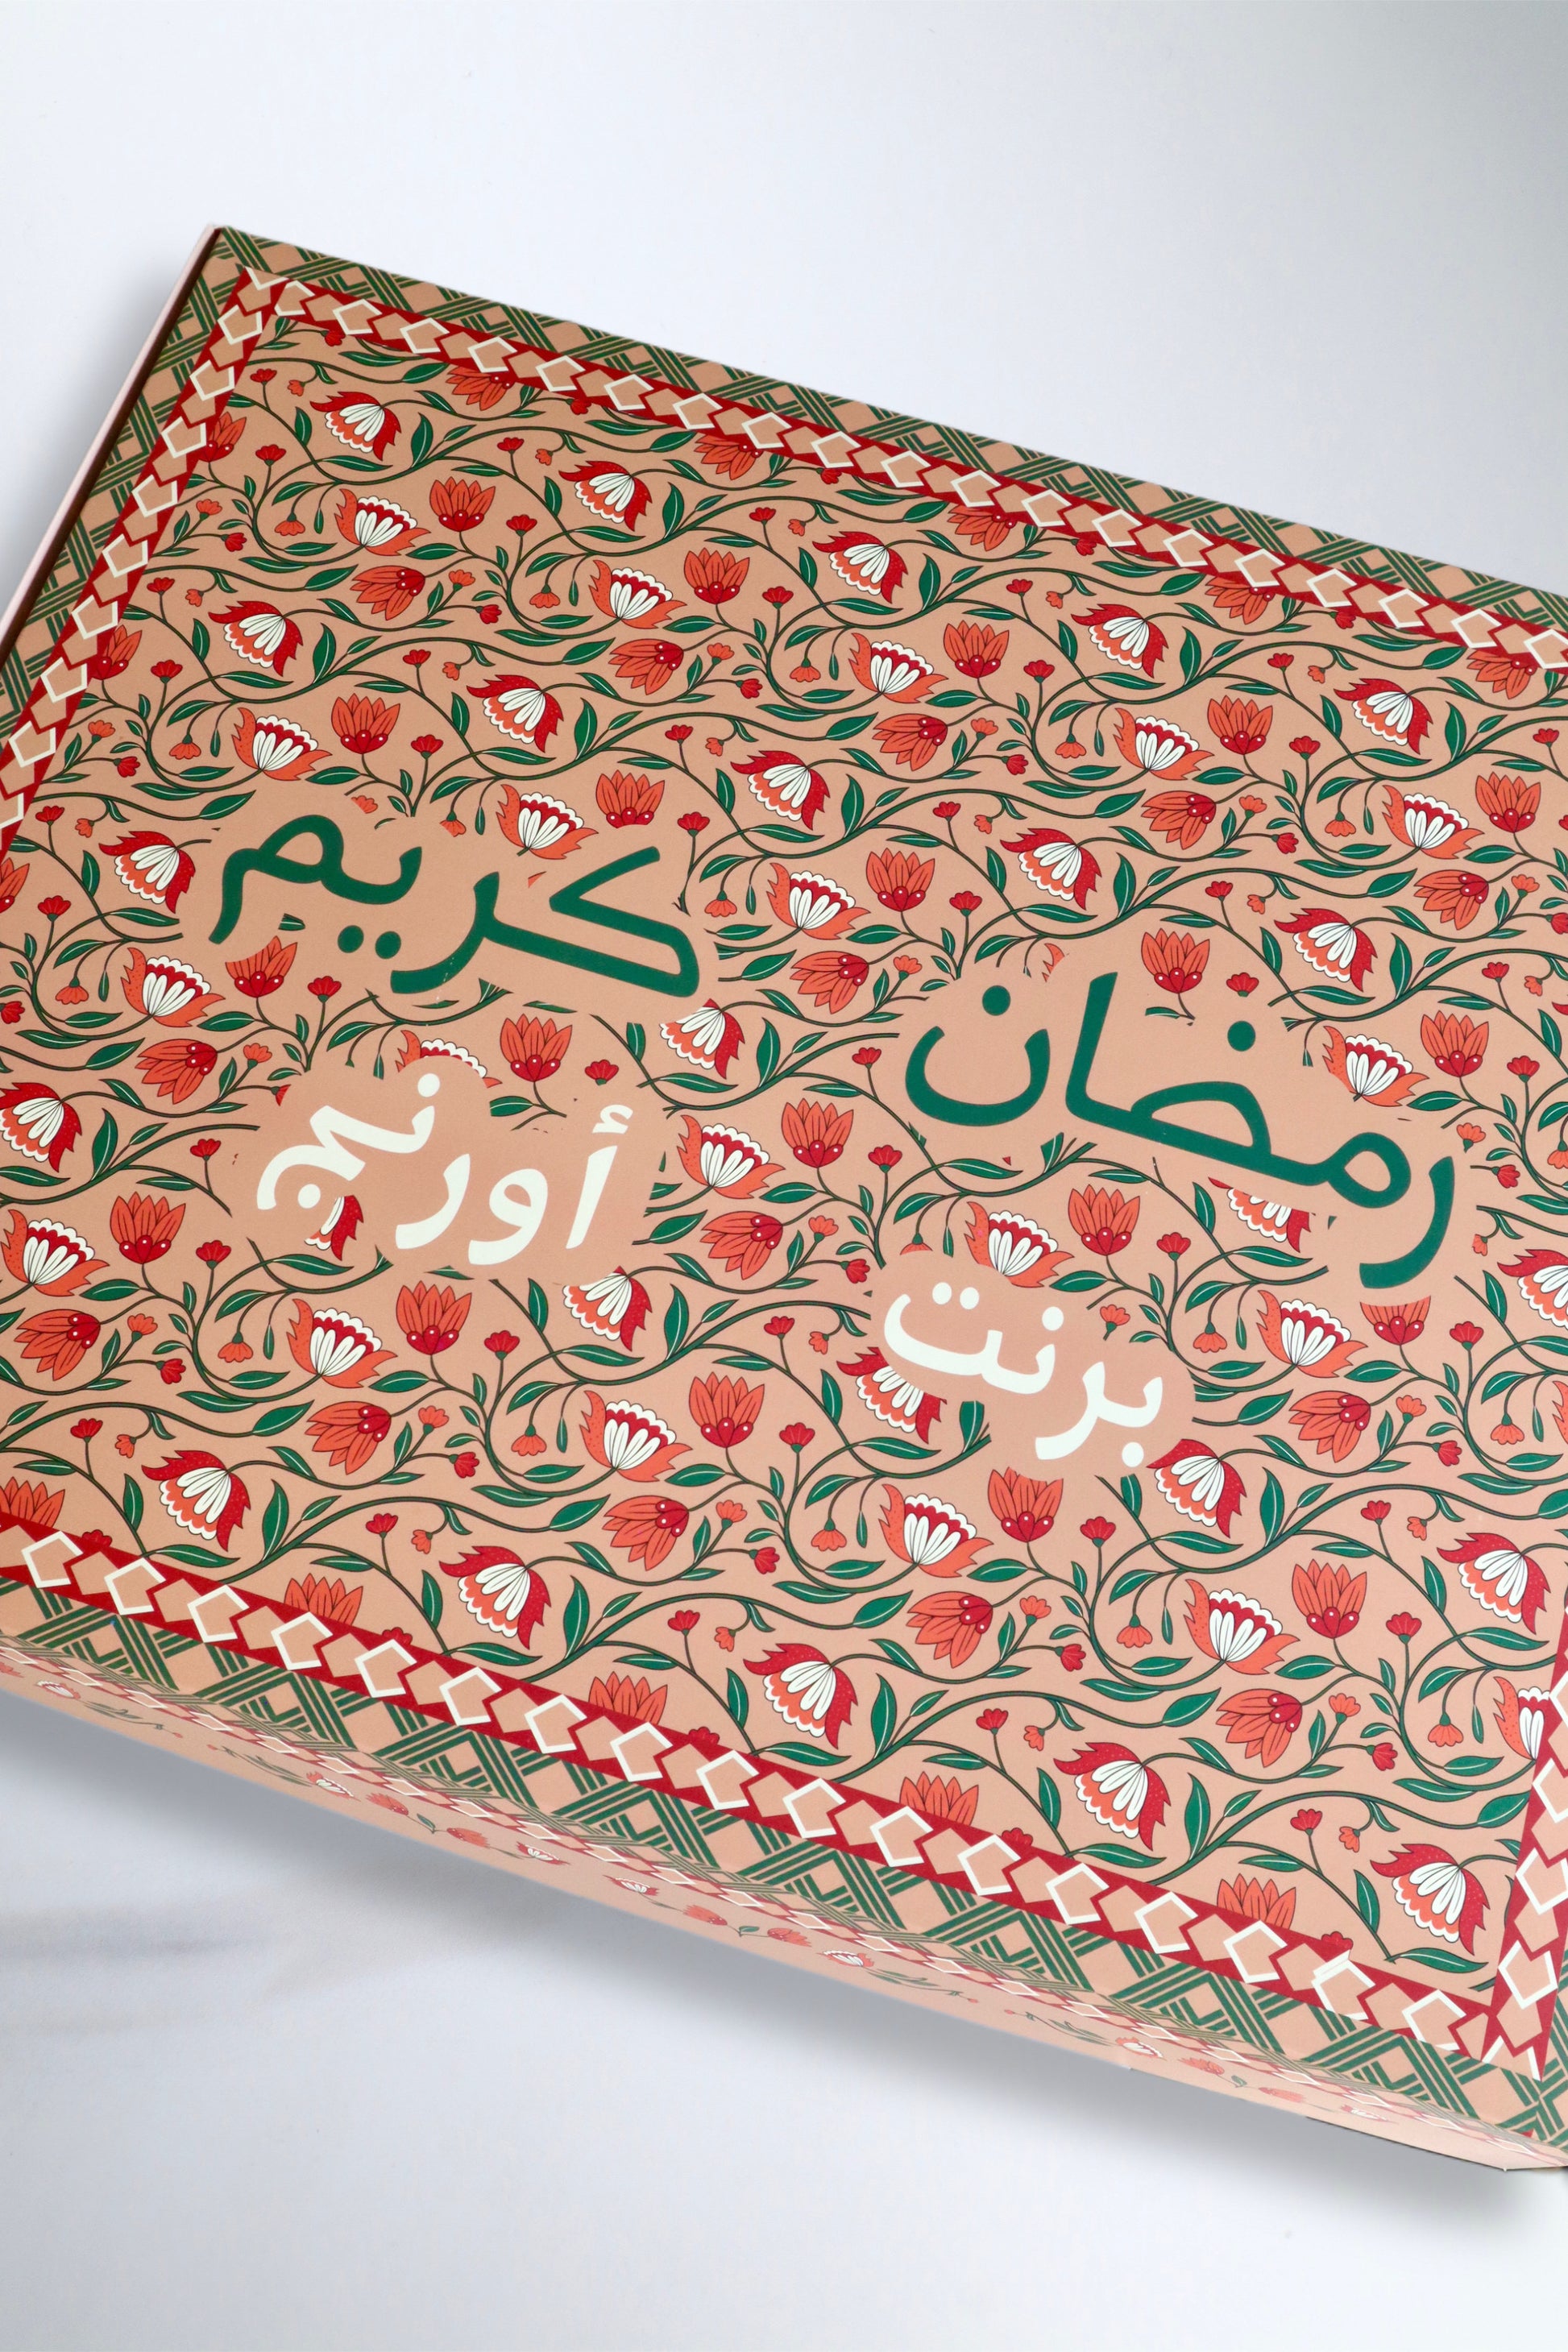 رمضان كريم
برنت أورنج